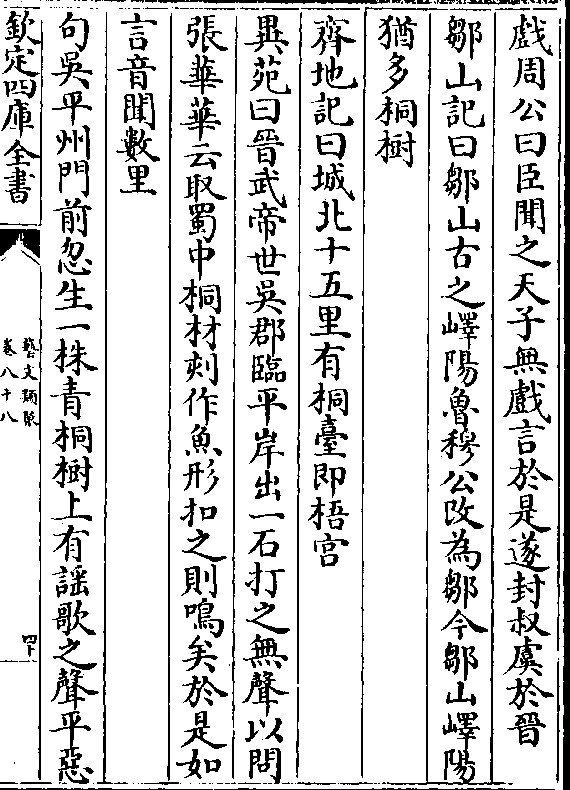 戲周公曰臣聞之天子無戲言於是遂封叔虞於晉
鄒山記曰鄒山古之嶧陽魯穆公改為鄒今鄒山嶧陽
猶多桐樹
齊地記曰城北十五里有桐臺即梧宮
異苑曰晉武帝世吳郡臨平岸出一石打之無聲以問
張華華云取蜀中桐材刻作魚形扣之則鳴矣於是如
言音聞數里
句吳平州門前忽生一株青桐樹上有謡歌之聲平惡
欽定四庫全書
藝文類聚
卷八十八
四十